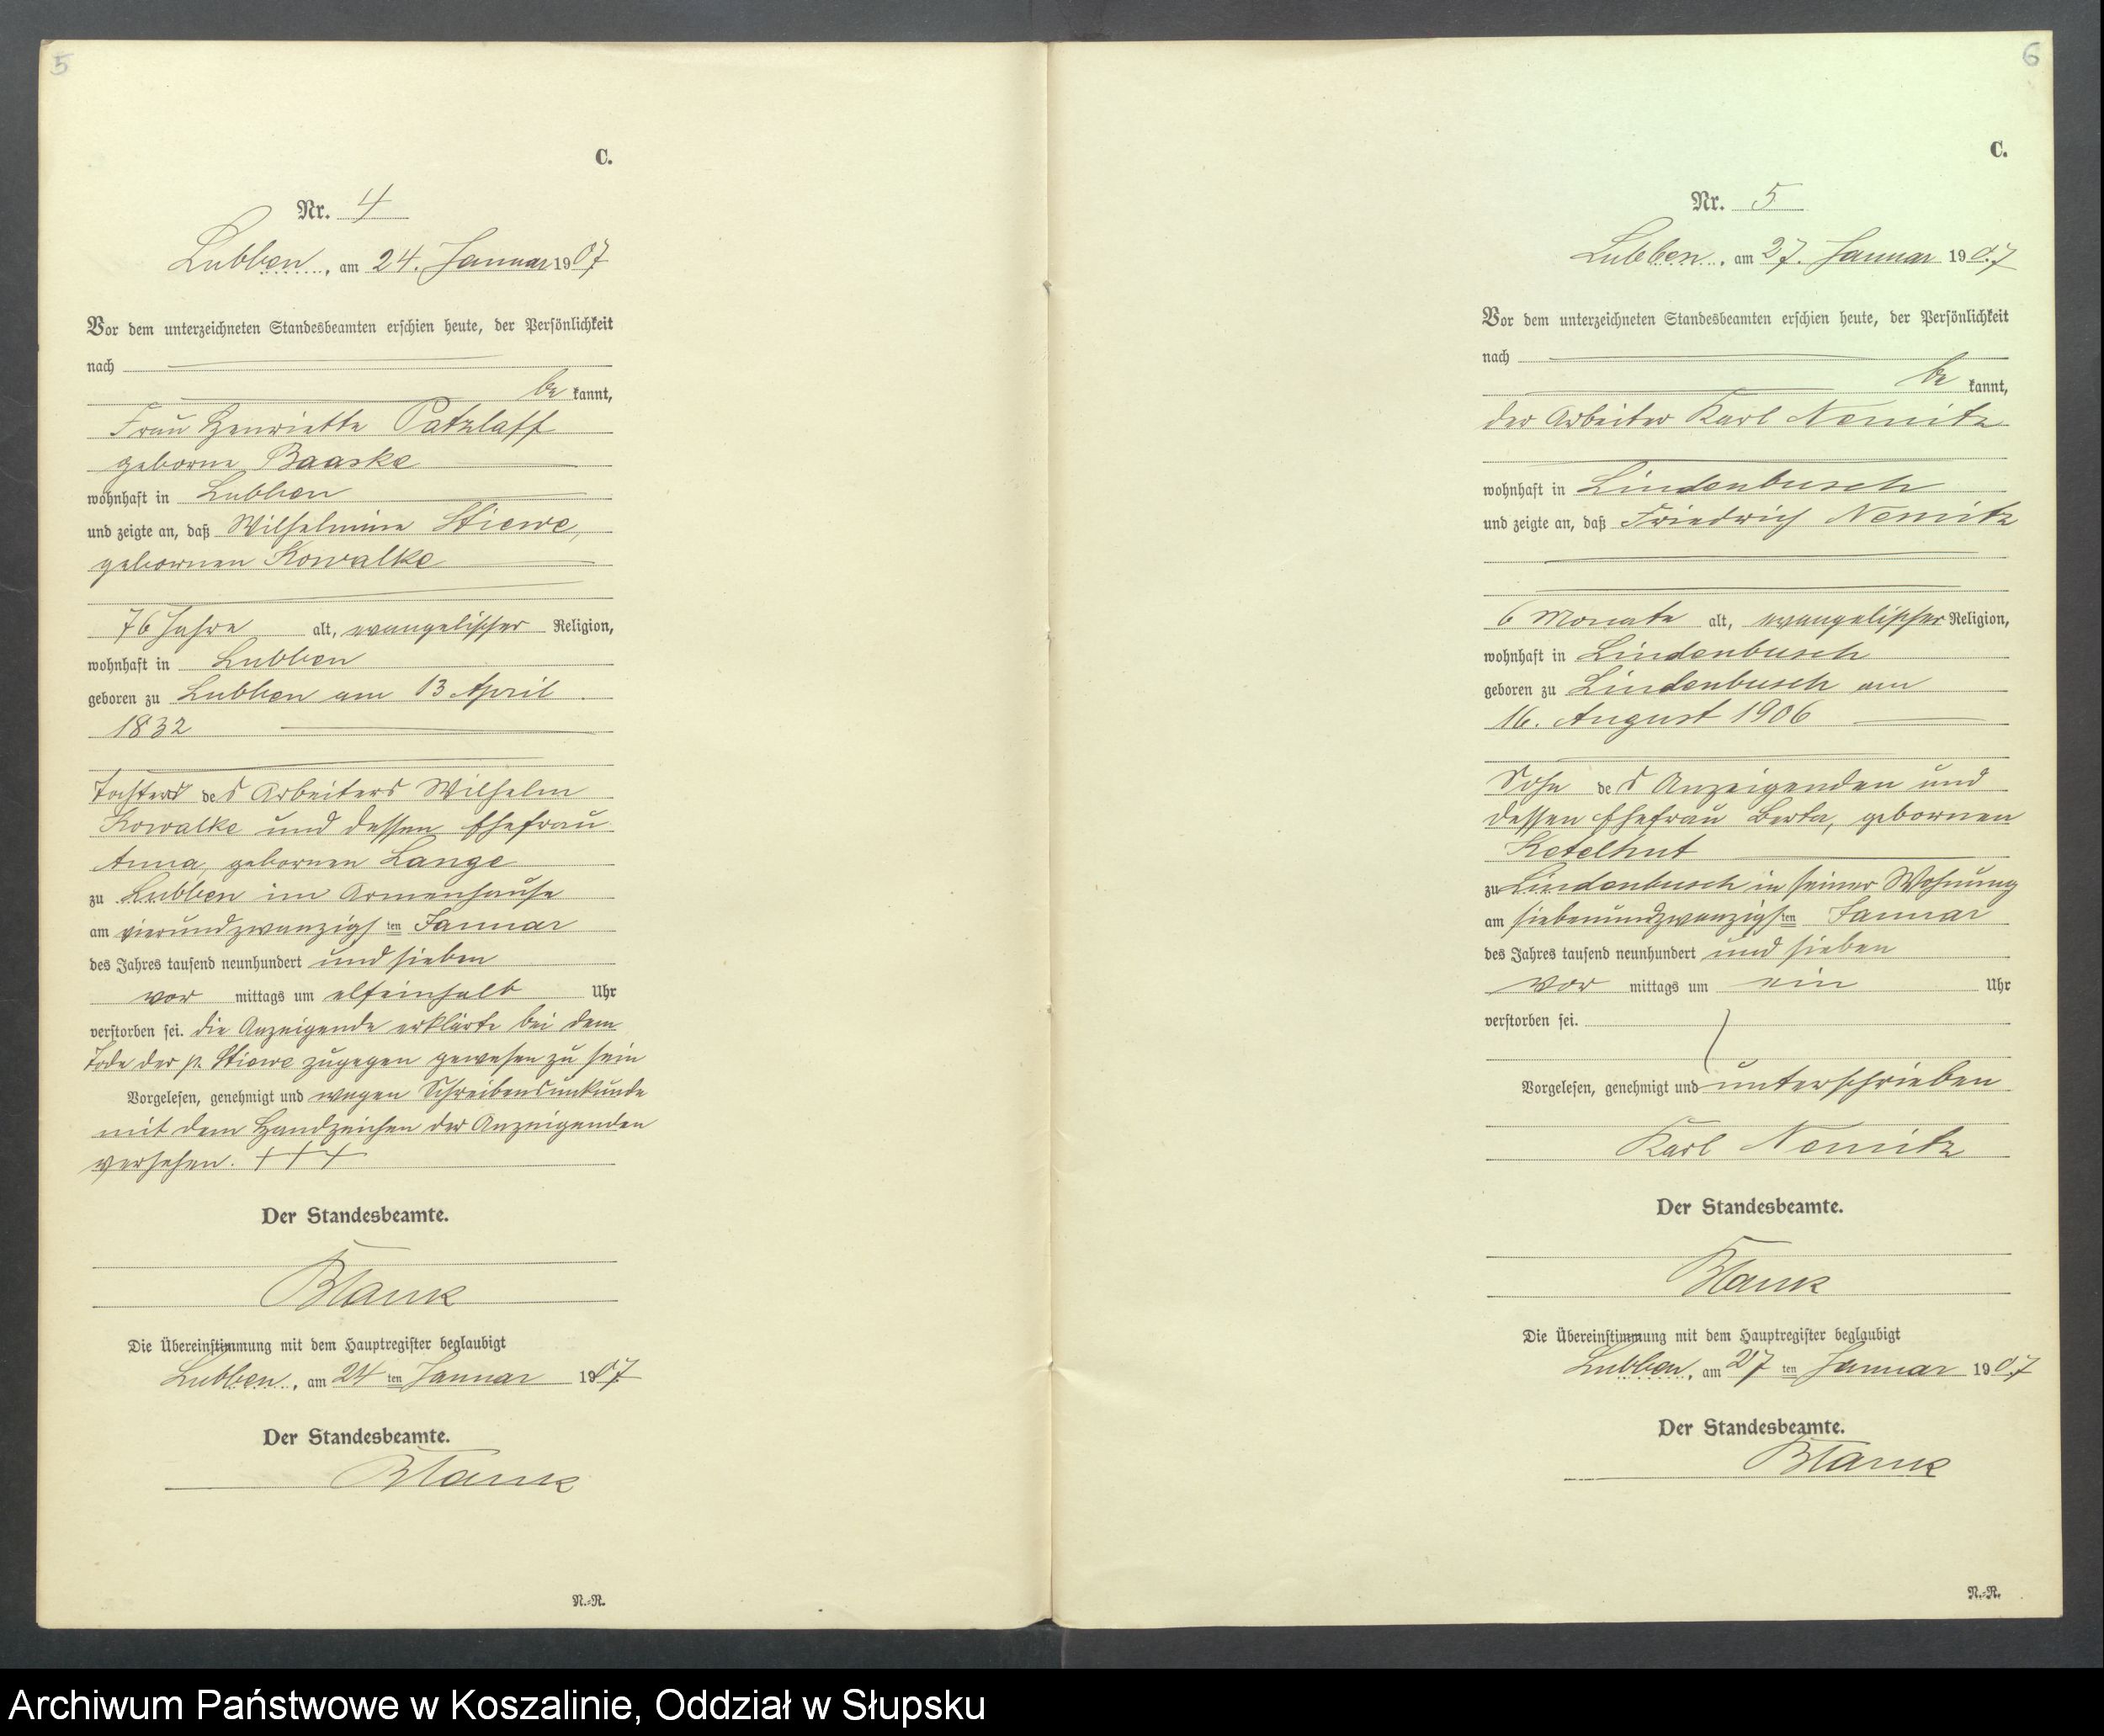 5
C.
Nr. 4
Lubben, am 24. Januar 1907
Vor dem unterzeichneten Standesbeamten erschien heute, der Persönlichkeit
nach
be kannt,
Frau Henriette Patzlaff
geborne Baaske
wohnhaft in Lubben
und zeigte an, daß Wilhelmine Stiewe,
gebornen Kowalke
76 Jahre alt, evangelischer Religion,
wohnhaft in Lubben
geboren zu Lubben am 13 April
1832
Tochter des Arbeiters Wilhelm
Kowalke und dessen Ehefrau
Anna, gebornen Lange
zu Lubben im Armenhause
am vierundzwanzigsten Januar
des Jahres tausend neunhundert und sieben
vor mittags um elfeinhalb Uhr
verstorben sei. die Anzeigende erklärte bei dem
Tode der p. Stiewe zugegen gewesen zu sein
Vorgelesen, genehmigt und wegen Schreibensunkunde
mit dem Handzeichen der Anzeigenden
versehen. +++
Der Standesbeamte.
Blank
Die Übereinstimmung mit dem Hauptregister beglaubigt
Lubben, am 24 ten Januar 1907
Der Standesbeamte.
Blank
N.-R.
6
C.
Nr. 5
Lubben, am 27. Januar 1907
Vor dem unterzeichneten Standesbeamten erschien heute, der Persönlichkeit
nach
be kannt,
der Arbeiter Karl Nemitz
wohnhaft in Lindenbusch
und zeigte an, daß Friedrich Nemitz
6 Monate alt, evangelischer Religion,
wohnhaft in Lindenbusch
geboren zu Lindenbusch am
16. August 1906
Sohn des Anzeigenden und
dessen Ehefrau Berta, gebornen
Ketelhut
zu Lindenbusch in seiner Wohnung
am siebenundzwanzigsten Januar
des Jahres tausend neunhundert und sieben
vor mittags um ein Uhr
verstorben sei.
Vorgelesen, genehmigt und unterschrieben
Karl Nemitz
Der Standesbeamte.
Blank
Die Übereinstimmung mit dem Hauptregister beglaubigt
Lubben, am 27 ten Januar 1907
Der Standesbeamte.
Blank
N.-R.
Archiwum Państwowe w Koszalinie, Oddział w Słupsku